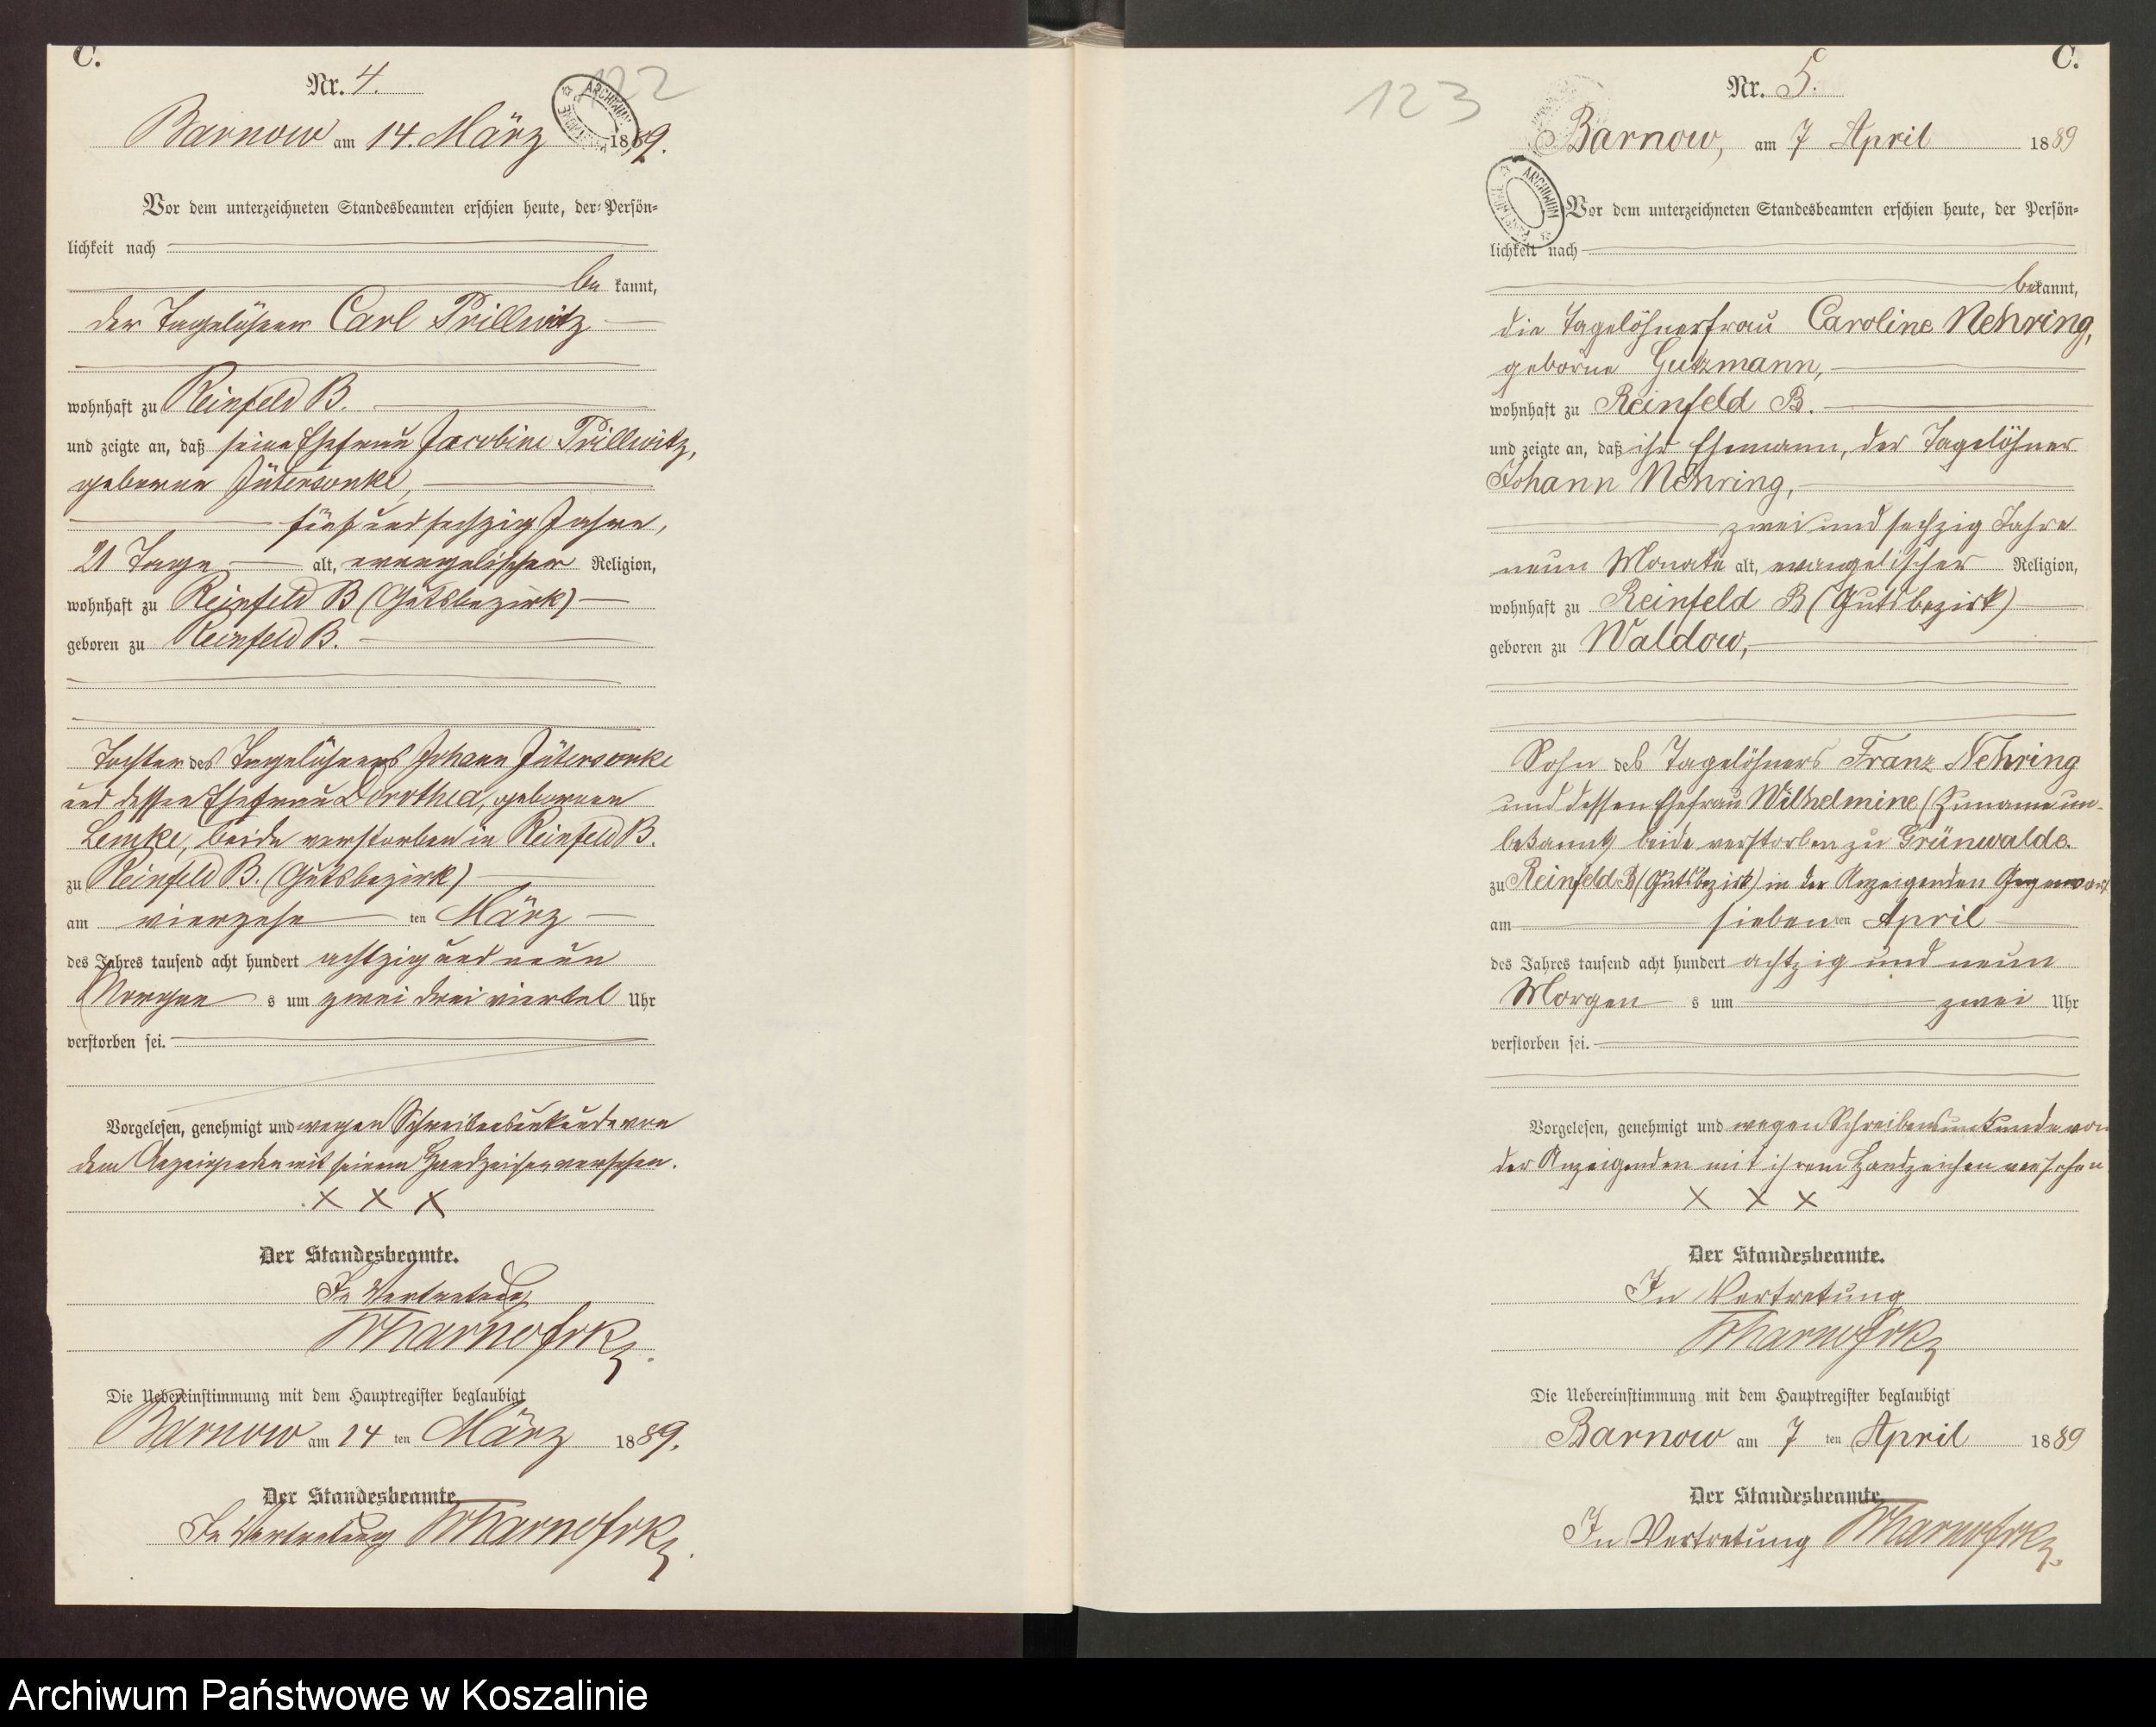 C.
Nr. 4.
122
ARCHIWUM
Barnow am 14. März 1889.
Vor dem unterzeichneten Standesbeamten erschien heute, der Persön-
lichkeit nach
be kannt,
der Tagelöhner Carl Prillwitz
wohnhaft zu Reinfeld B.
und zeigte an, daß seine Ehefrau Jacobine Prillwitz,
geborene Jütersonke,
fünf und sechzig Jahre,
21 Tage alt, evangelischer Religion,
wohnhaft zu Reinfeld B (Gutsbezirk)
geboren zu Reinfeld B.
Tochter des Tagelöhners Johann Jütersonke
und dessen Ehefrau Dorothea, geborenen
Lemke, beide verstorben in Reinfeld B.
zu Reinfeld B. (Gutsbezirk)
am vierzehn ten März
des Jahres tausend acht hundert achtzig und neun
Morgen s um zwei drei viertel Uhr
verstorben sei.
Vorgelesen, genehmigt und wegen Schreibensunkunde von
dem Anzeigenden mit seinem Handzeichen versehen.
X X X
Der Standesbeamte.
In Vertretung
Die Uebereinstimmung mit dem Hauptregister beglaubigt
Barnow am 14 ten März 1889.
Der Standesbeamte
In Vertretung
C.
Nr. 5.
123
Barnow, am 7 April 1889
ARCHIWUM
Vor dem unterzeichneten Standesbeamten erschien heute, der Persön-
lichkeit nach
bekannt,
die Tagelöhnerfrau Caroline Nehring,
geborne Gutzmann,
wohnhaft zu Reinfeld B.
und zeigte an, daß ihr Ehemann, der Tagelöhner
Johann Nehring,
zwei und sechzig Jahre
neun Monate alt, evangelischer Religion,
wohnhaft zu Reinfeld B (Gutsbezirk)
geboren zu Waldow,
Sohn des Tagelöhners Franz Nehring
und dessen Ehefrau Wilhelmine (Zuname un-
bekannt) beide verstorben zu Grünwalde.
zu Reinfeld B (Gutsbezirk) in der Anzeigenden Gegenwart
am sieben ten April
des Jahres tausend acht hundert achtzig und neun
Morgen s um zwei Uhr
verstorben sei.
Vorgelesen, genehmigt und wegen Schreibensunkunde von
der Anzeigenden mit ihrem Handzeichen versehen
X X X
Der Standesbeamte.
In Vertretung
Die Uebereinstimmung mit dem Hauptregister beglaubigt
Barnow am 7 ten April 1889
Der Standesbeamte
In Vertretung
Archiwum Państwowe w Koszalinie